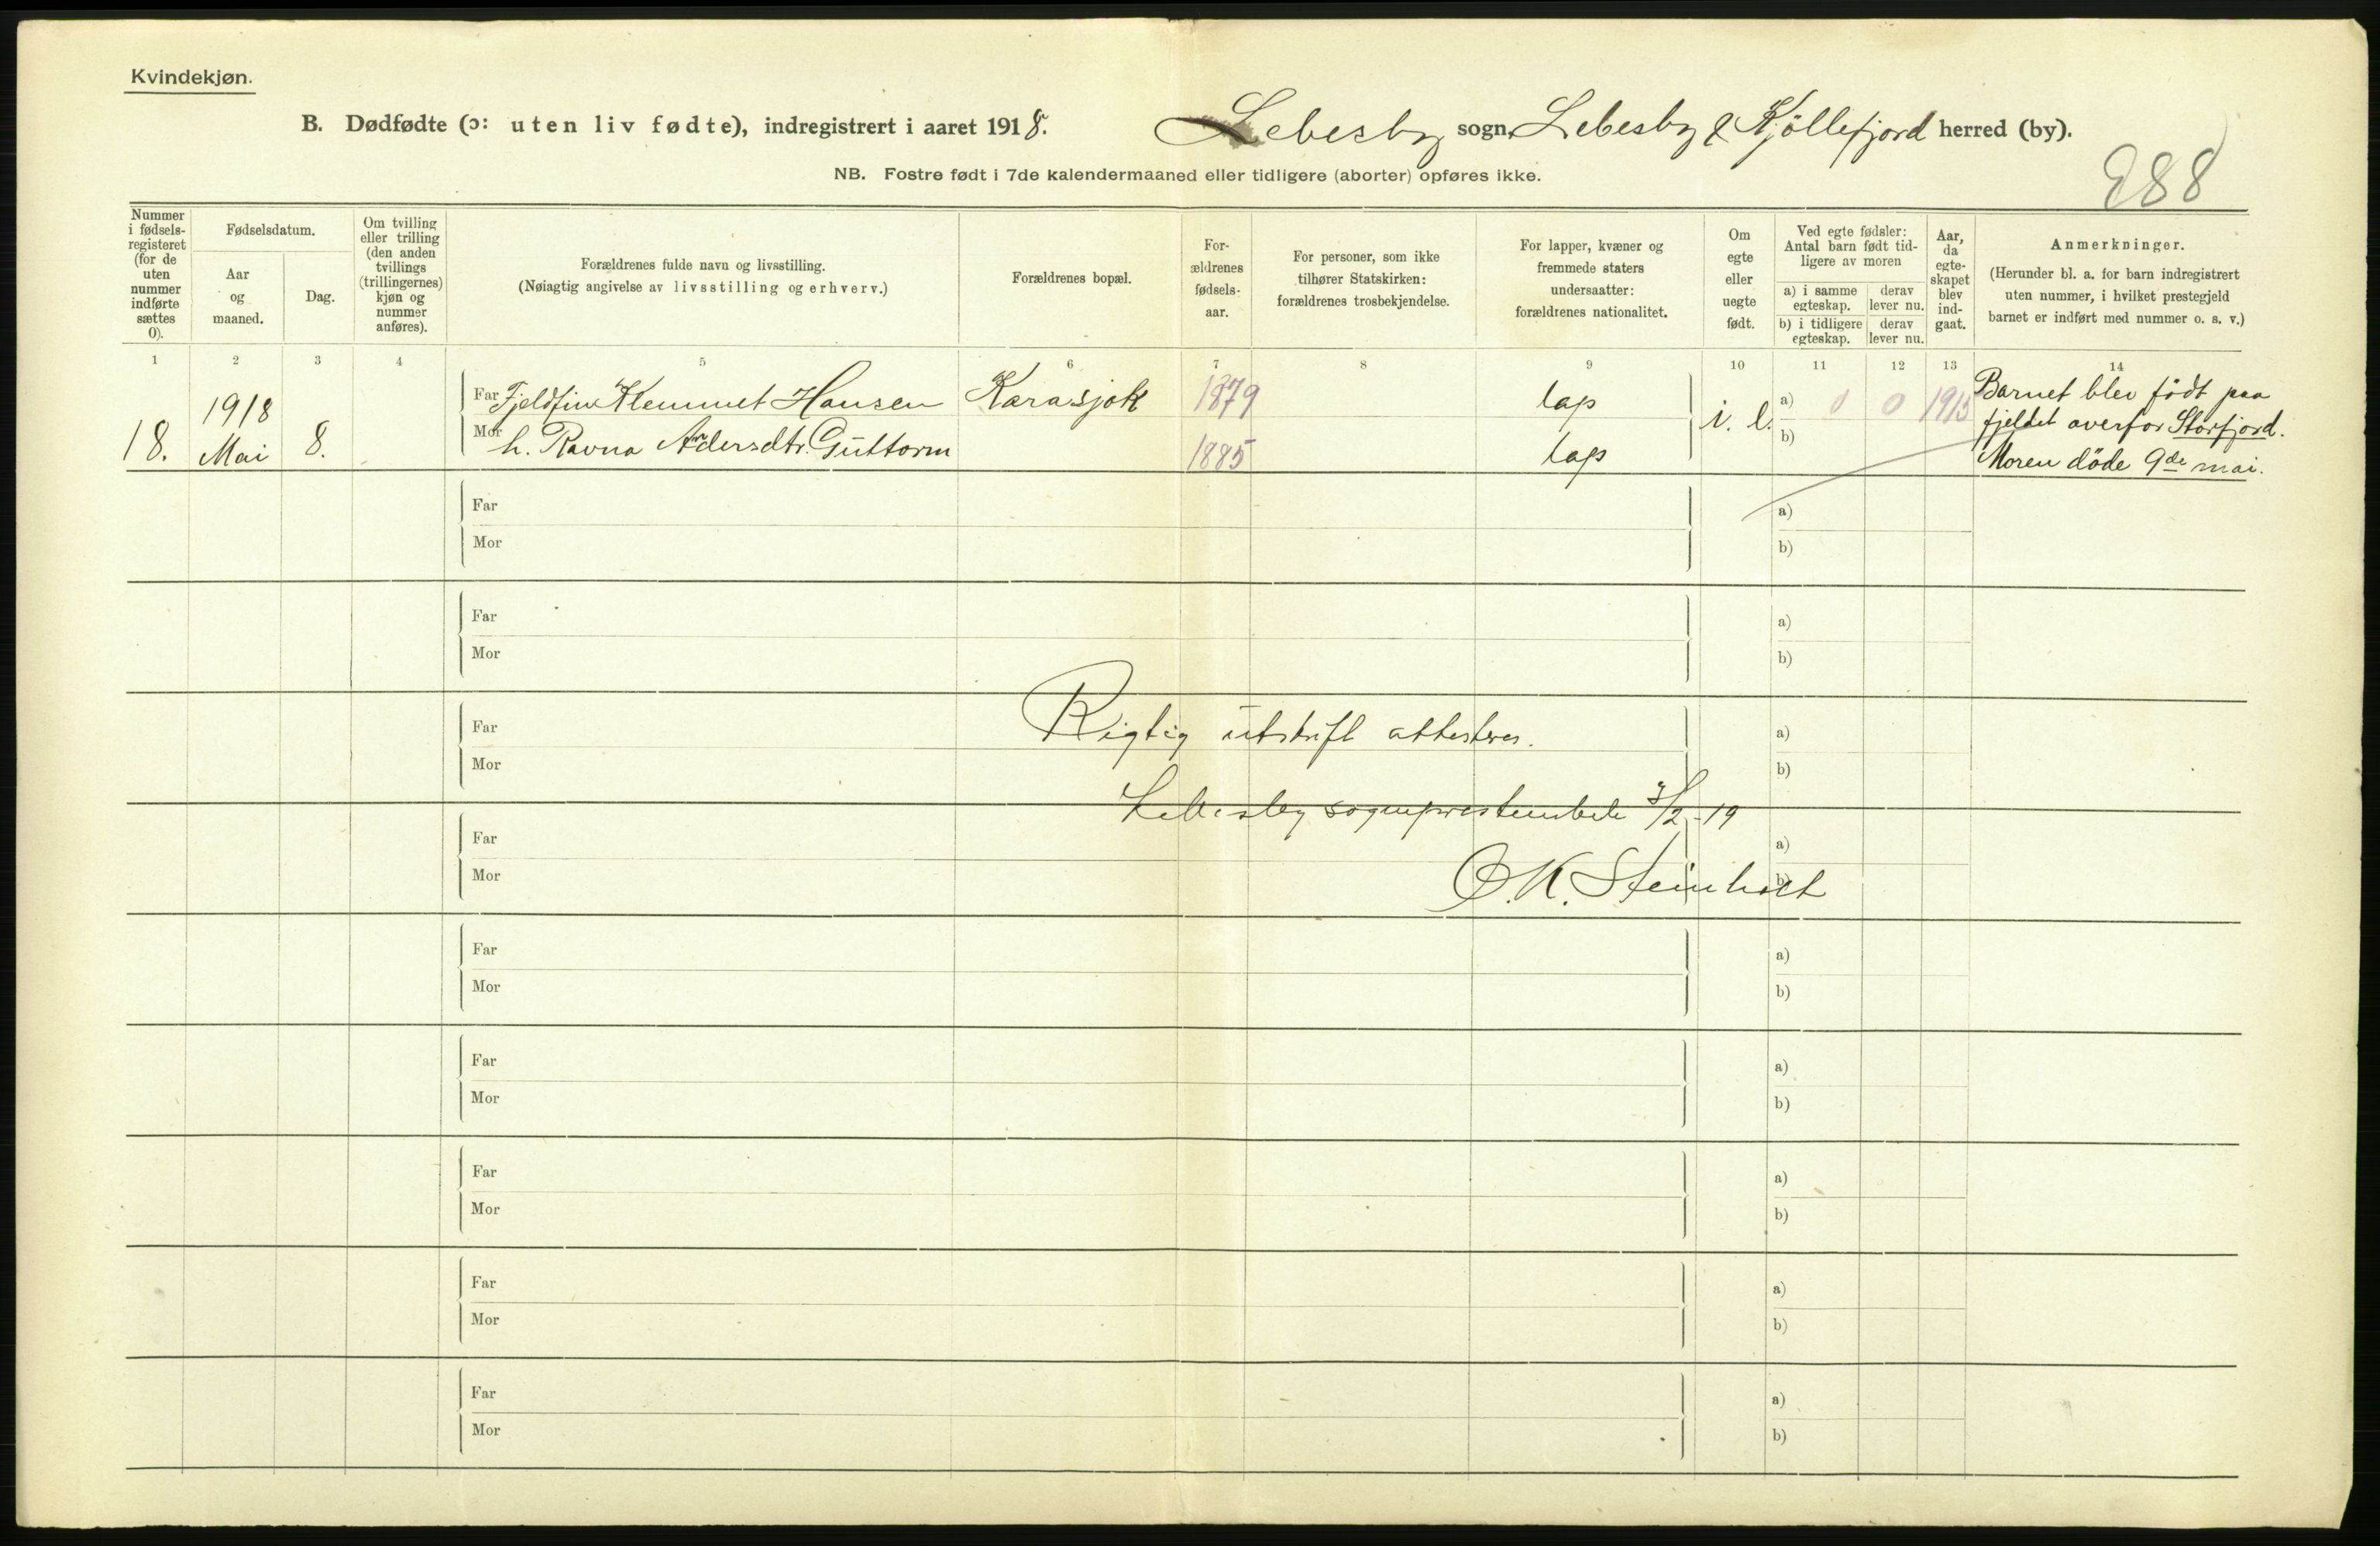 Kvindekjøn.
B. Dødfødte (ɔ: uten liv fødte), indregistrert i aaret 1918. Lebesby sogn, Lebesby & Kjöllefjord herred (by).
NB. Fostre født i 7de kalendermaaned eller tidligere (aborter) opføres ikke.
288
Nummer i fødsels-registeret (for de uten nummer indførte sættes 0).
Fødselsdatum.
Aar og maaned.
Dag.
Om tvilling eller trilling (den anden tvillings (trillingernes) kjøn og nummer anføres).
Forældrenes fulde navn og livsstilling.
(Nøiagtig angivelse av livsstilling og erhverv.)
Forældrenes bopæl.
For-ældrenes fødsels-aar.
For personer, som ikke tilhører Statskirken: forældrenes trosbekjendelse.
For lapper, kvæner og fremmede staters undersaatter: forældrenes nationalitet.
Om egte eller uegte født.
Ved egte fødsler: Antal barn født tid-ligere av moren
a) i samme egteskap.
derav lever nu.
b) i tidligere egteskap.
derav lever nu.
Aar, da egte-skapet blev ind-gaat.
Anmerkninger.
(Herunder bl. a. for barn indregistrert uten nummer, i hvilket prestegjeld barnet er indført med nummer o. s. v.)
1 2 3 4 5 6 7 8 9 10 11 12 13 14
18. 1918 Mai 8.
Far Fjeldfin Klemmet Hansen Karasjok 1879 lap
Mor h. Ravna Andersdtr. Guttorm 1885 lap
a) 0 0 1915
b)
Barnet blev födt paa
fjeldet overfor Storfjord.
Moren döde 9de mai.
Far a)
Mor b)
Far a)
Mor b)
Far a)
Mor b)
Rigtig utskrift attesteres.
Lebesby sogneprestembede 3/2 - 19
Far a)
Mor b)
O.K. Steinholt
Far a)
Mor b)
Far a)
Mor b)
Far a)
Mor b)
Far a)
Mor b)
Far a)
Mor b)